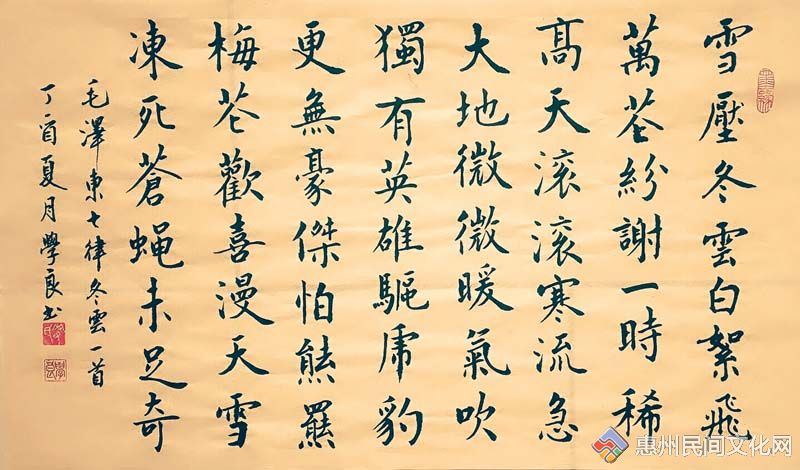 雪壓冬雲白絮飛
萬花紛謝一時稀
髙天滚滚寒流急
大地微微暖氣吹
獨有英雄驅虎豹
更無豪傑怕熊羆
梅花歡喜漫天雪
凍死蒼蝇未足奇
毛澤東七律冬雲一首
丁酉夏月學良书
惠州民间文化网